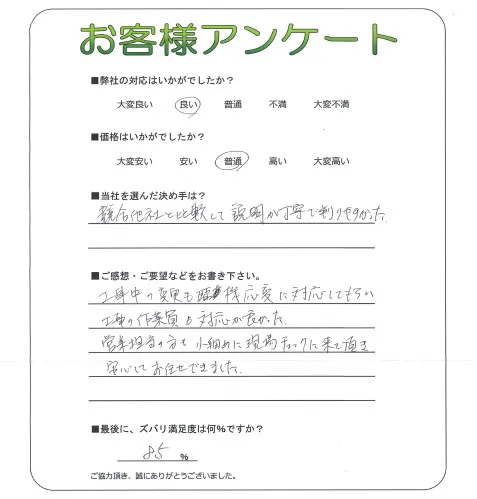 お客様アンケート
■弊社の対応はいかがでしたか？
大変良い 良い 普通 不満 大変不満
■価格はいかがでしたか？
大変安い 安い 普通 高い 大変高い
■当社を選んだ決め手は？
競合他社と比較して説明が丁寧で判りやすかった.
■ご感想・ご要望などをお書き下さい。
工事中の変更も臨機応変に対応してもらい
工事の作業員も対応が良かった.
営業担当の方も小細めに現場チェックに来て頂き
安心してお任せできました.
■最後に、ズバリ満足度は何%ですか？
85 %
ご協力頂き、誠にありがとうございました。